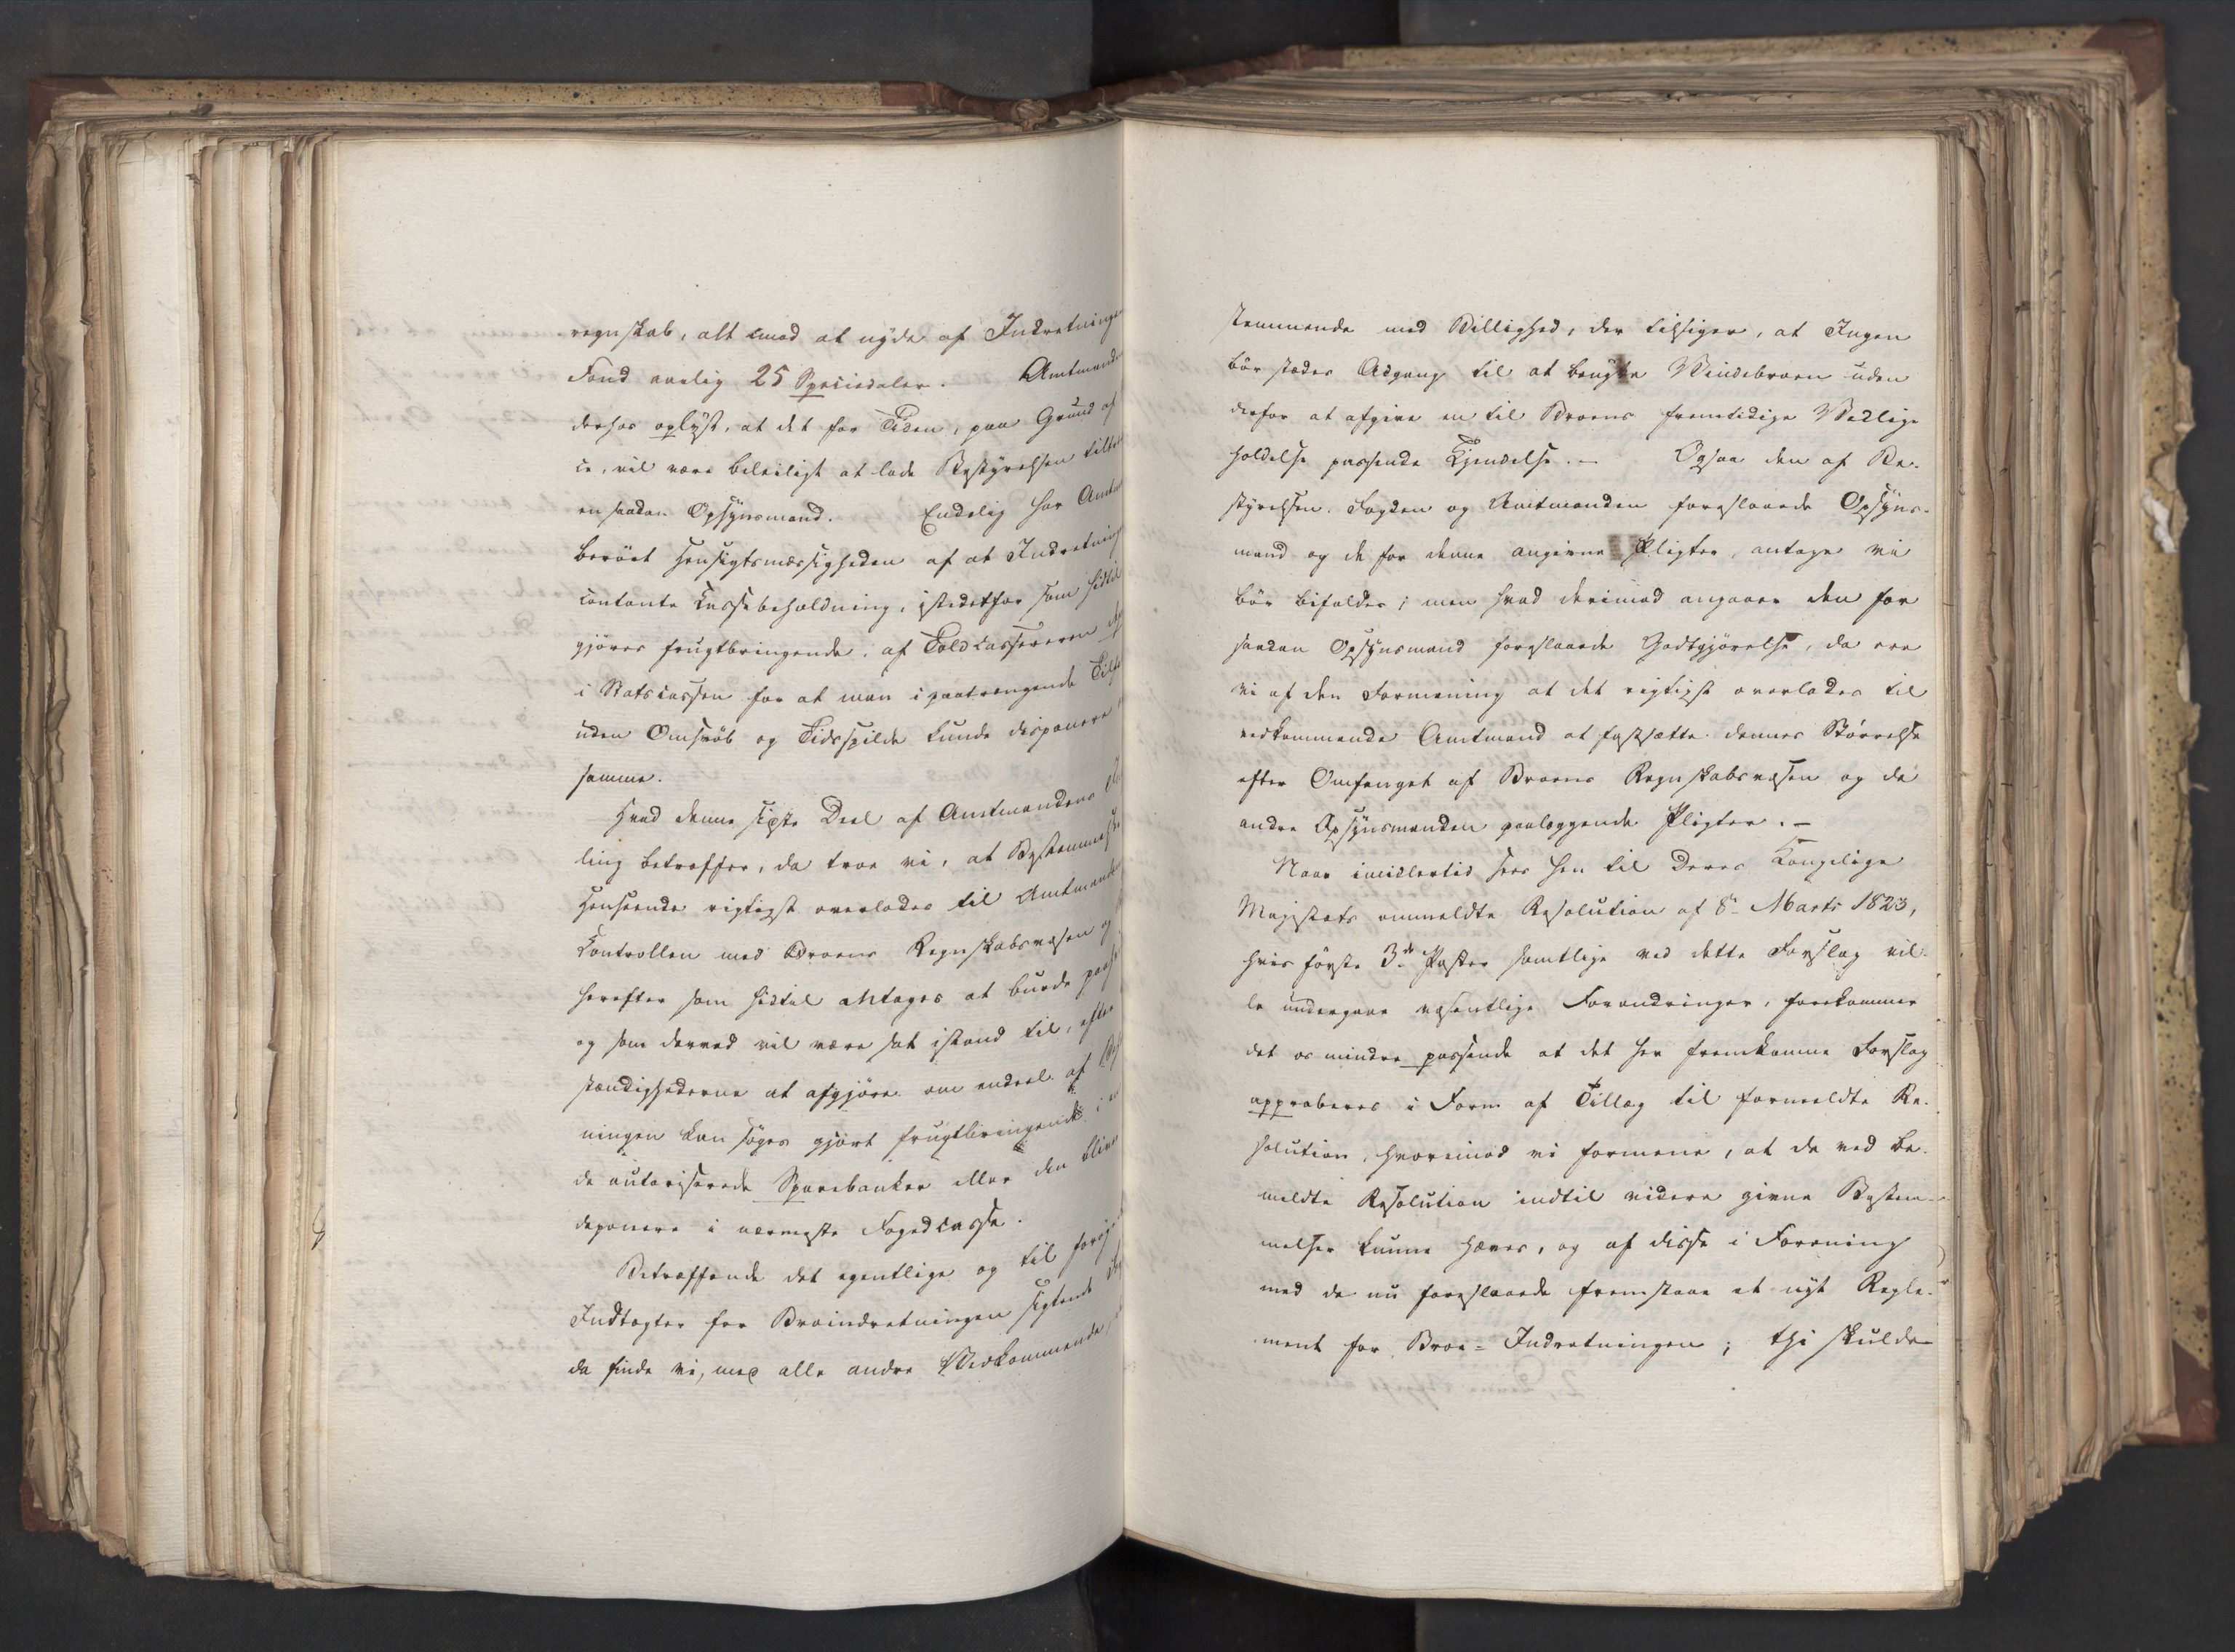 regnskab, alt imod at nyde af Indretningen
Fond aarlig 25 Speciedaler. Amtmanden
derhos oplyst, at det for Tiden, paa Grund af
vil være beleiligt at lade Bestyrelsen
en saadan Opsynsmand. Endelig har
berört Hensigtsmæssigheden af at Indretning
contante Kassebeholdning, istedetfor som hidtil
gjöres frugtbringende, af Toldkassereren
i Statscassen for at man i paatrængende
uden Omsvöb og Tidsspilde kunde disponere
samme.
Hvad denne sidste Deel af Amtmandens
ling betræffer, da troe vi, at Bestemmelse
Henseende rigtigst overlades til Amtmanden
Kontrollen med Broens Regnskabsvæsen og
herefter som hidtil antages at burde
og som derved vil være sat istand til, efter
stændighederne at afgjöre om endeel af
ningen kan söges gjört frugtbringende i
de autoriserede Sparebanker eller den bliver
deponere i nærmeste Fogedcasse.
Betræffende det egentlige og til
Indtægter for Broindretningen sigtende
da finde vi, med alle andre Vedkommende,
stemmende med Billighed, der tilsiger, at Ingen
bör stedes Adgang til at benytte Vindebroen uden
derfor at afgive en til Broens fremtidige Vedlige
holdelse passende Kjendelse. – Ogsaa den af Be-
styrelsen, Fogden og Amtmanden foreslaaede Opsyns-
mand og de for denne angivne Pligter, antage vi
bör bifaldes; men hvad derimod angaaer den for
saadan Opsynsmand foreslaaede Godtgjörelse, da ere
vi af den Formening at det rigtigst overlades til
vedkommende Amtmand at fastsætte dennes Störrelse
efter Omfanget af Broens Regnskabsvæsen og de
andre Opsynsmanden paaliggende Pligter. –
Naar imidlertid sees hen til Deres Kongelige
Majestæts ommeldte Resolution af 8de Marts 1823,
hvis förste 3de Poster samtlige ved dette Forslag vil-
le undergaae væsentlige Forandringer, forekommer
det os mindre passende at det her fremkomne Forslag
approberes i Form af Tillæg til formeldte Re-
solution, hvorimod vi formene, at de ved be-
meldte Resolution indtil videre givne Bestem-
melser kunne hæves, og af disse i Forening
med de nu foreslaaede fremstaae et nyt Regle-
ment for Broe-Indretningen; thi skulde